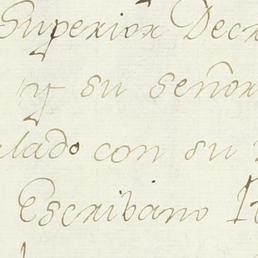 Superior Decr
y su señor
lado con su
Escribano